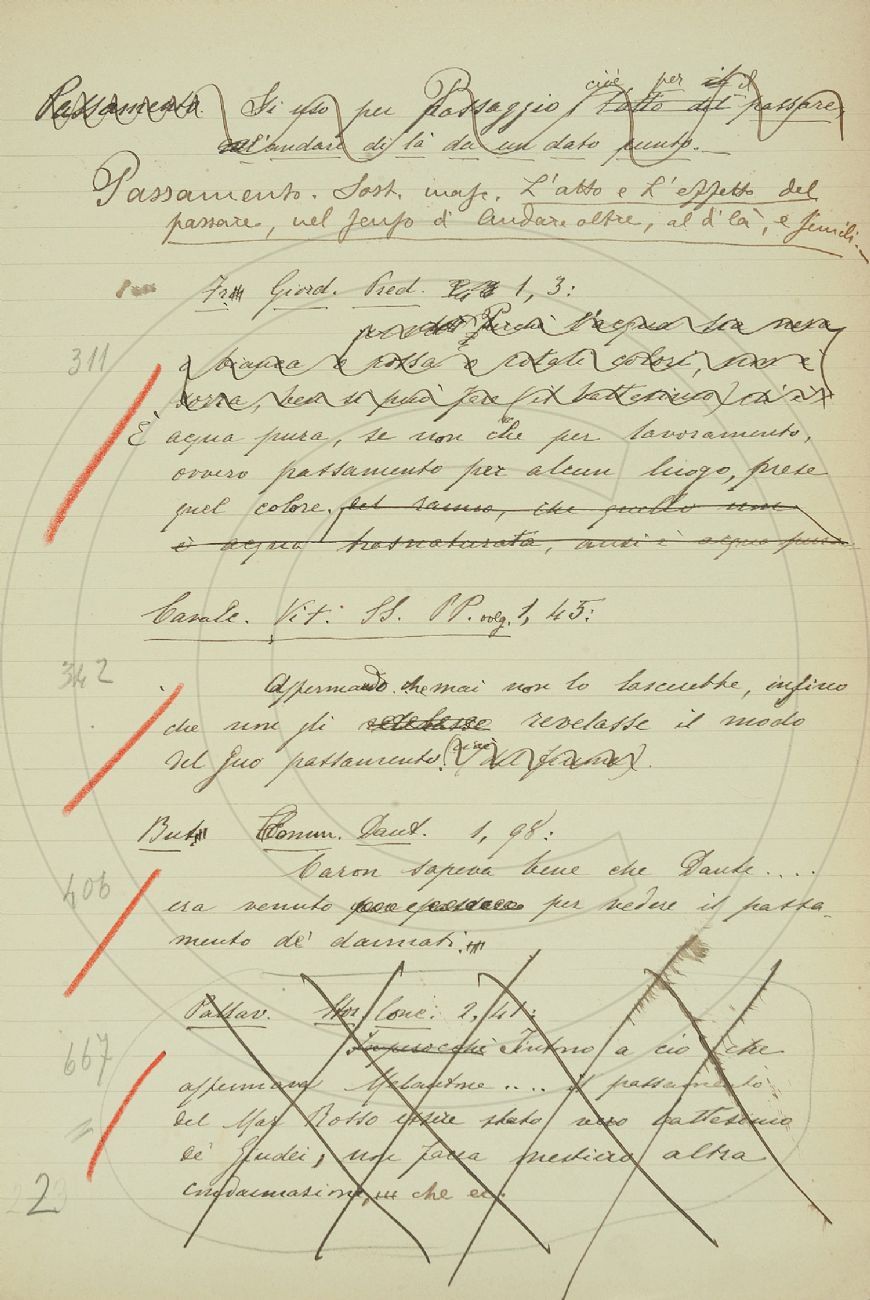 Passamento. Si usa per Passaggio, cioè per il
l'atto del passare,
all'andare di là da un dato punto.
Passamento. Sost. masc. L'atto e L'effetto del
passare, nel senso d'Andare oltre, al di là, e simili.
Fr. Giord. Pred. 1, 3:
Perchè l'acqua sia nera
o bianca o rossa o cotali colori, non è
sozza, ben si può fare (il battesimo)
311
È acqua pura, se non che per lavoramento,
ovvero passamento per alcun luogo, prese
quel colore. del ranno, che quello non
è acqua trasnaturata, anzi è acqua pura
Cavalc. Vit. SS. PP. volg. 1, 45:
342
Affermando che mai non lo lascerebbe, infino
che non gli revelasse il modo
del suo passamento. (cioè del fiume).
But. Comm. Dant. 1, 98:
Caron sapeva bene che Dante....
406
era venuto per vedere il passa-
mento de' dannati.
Pallav. Stor. Conc. 2, 41:
Imperocchè Intorno a ciò che
667
affermava Melantone .... il passamento
del Mar Rosso essere stato vero battesimo
de' Giudei, non facea mestiero altra
condannazione, che ec.
2